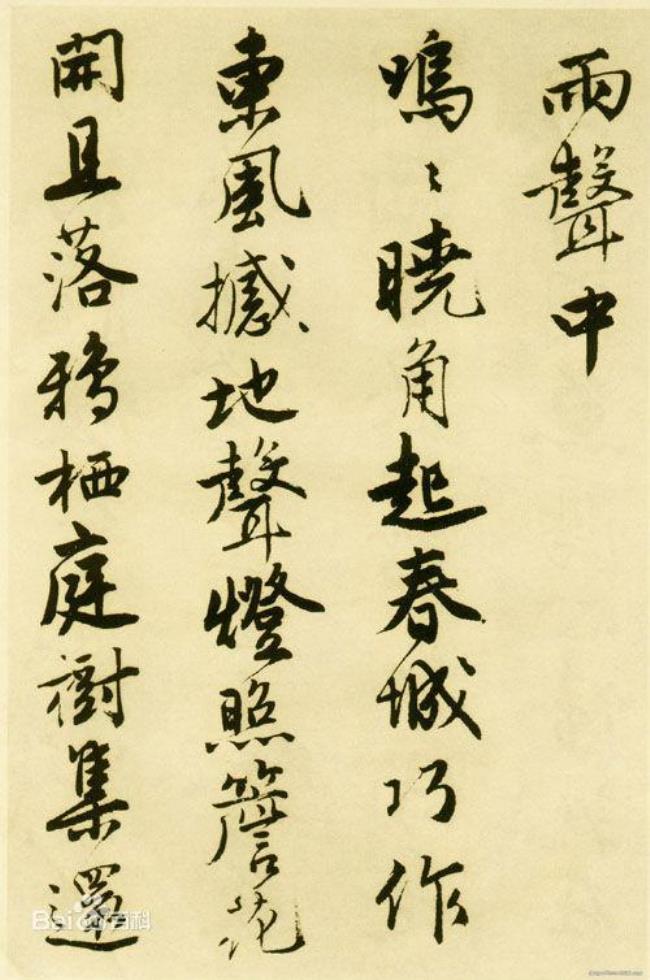 雨聲中
嗚〻曉角起春城巧作
東風撼地聲燈照簷花
開且落鴉栖庭樹集還
Bai百科